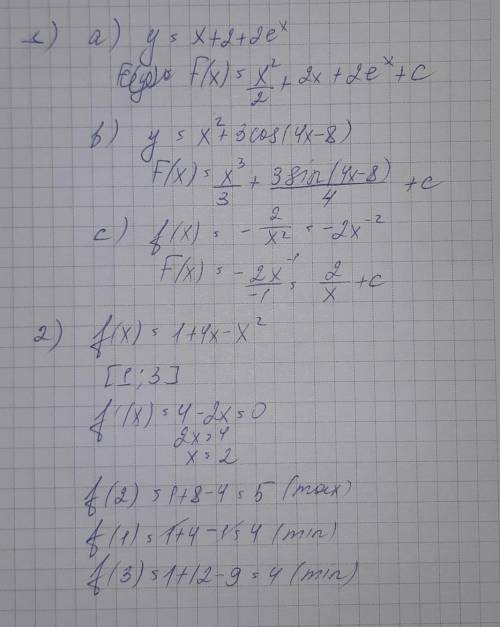 1) a) y = x+2+2eˣ
F(x) = x²/2 + 2x + 2eˣ + c
b) y = x² + 3cos(4x-8)
F(x) = x³/3 + 3sin(4x-8)/4 + c
c) f(x) = - 2/x² = -2x⁻²
F(x) = - 2x⁻¹/-1 = 2/x + c
2) f(x) = 1+4x-x²
[1;3]
f'(x) = 4-2x=0
2x=4
x=2
f(2) = 1+8-4=5 (max)
f(1) = 1+4-1=4 (min)
f(3) = 1+12-9=4 (min)